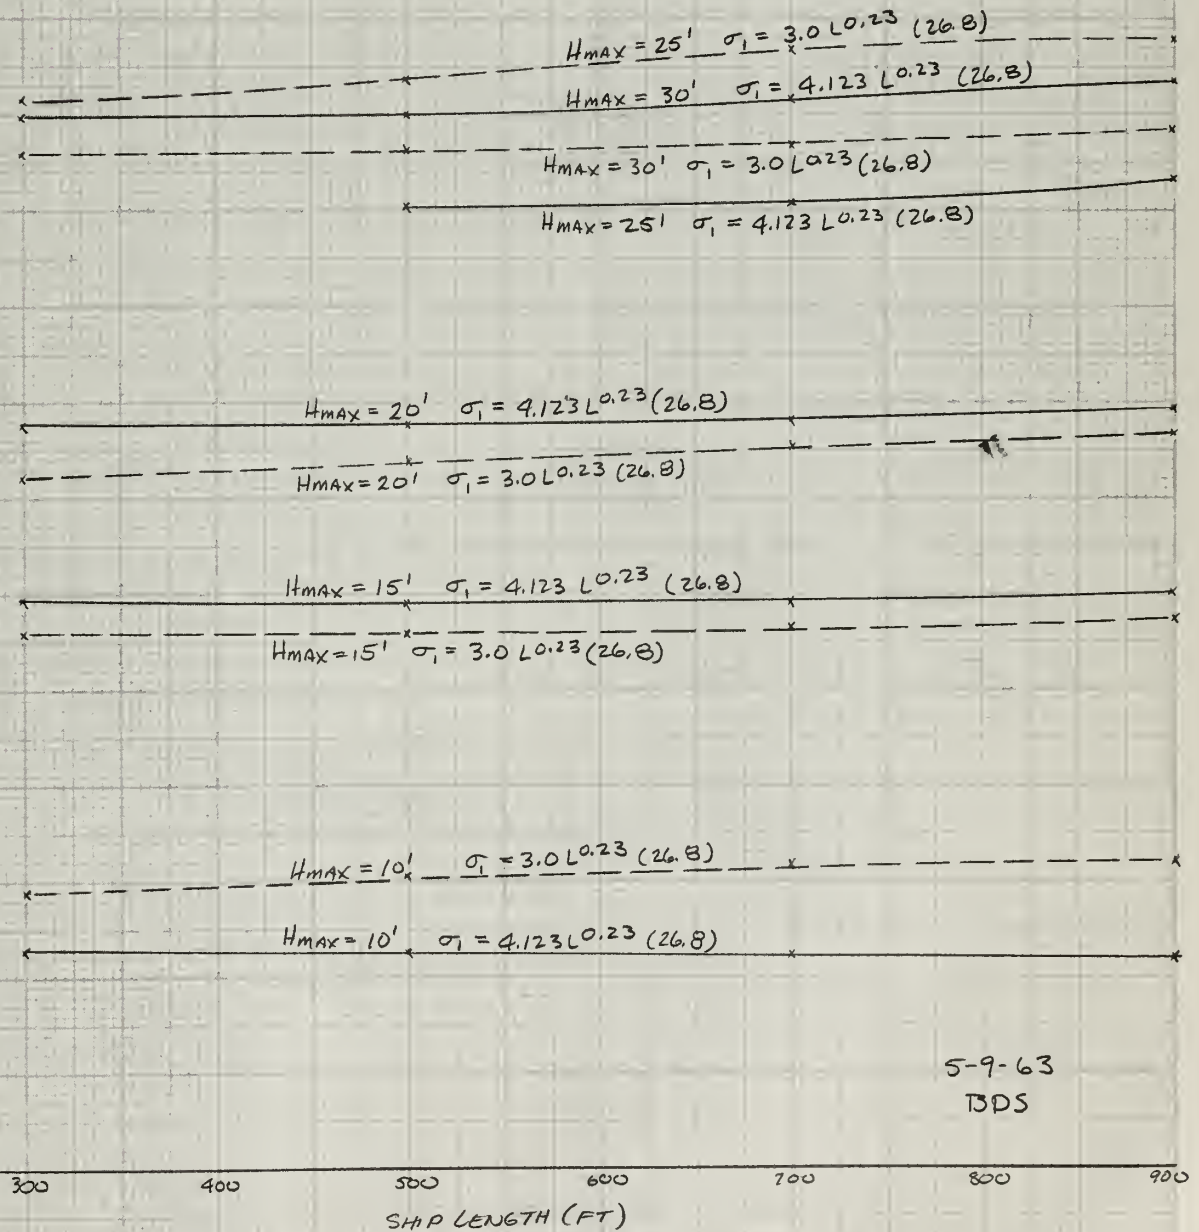 HMAX = 25' σ₁ = 3.0 L^0.23 (26.8)
HMAX = 30' σ₁ = 4.123 L^0.23 (26.8)
HMAX = 30' σ₁ = 3.0 L^0.23 (26.8)
HMAX = 25' σ₁ = 4.123 L^0.23 (26.8)
HMAX = 20' σ₁ = 4.123 L^0.23 (26.8)
HMAX = 20' σ₁ = 3.0 L^0.23 (26.8)
HMAX = 15' σ₁ = 4.123 L^0.23 (26.8)
HMAX = 15' σ₁ = 3.0 L^0.23 (26.8)
HMAX = 10' σ₁ = 3.0 L^0.23 (26.8)
HMAX = 10' σ₁ = 4.123 L^0.23 (26.8)
5-9-63
BDS
300 400 500 600 700 800 900
SHIP LENGTH (FT)